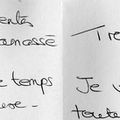 ents
amassé
temps
Tre
Je v
toute